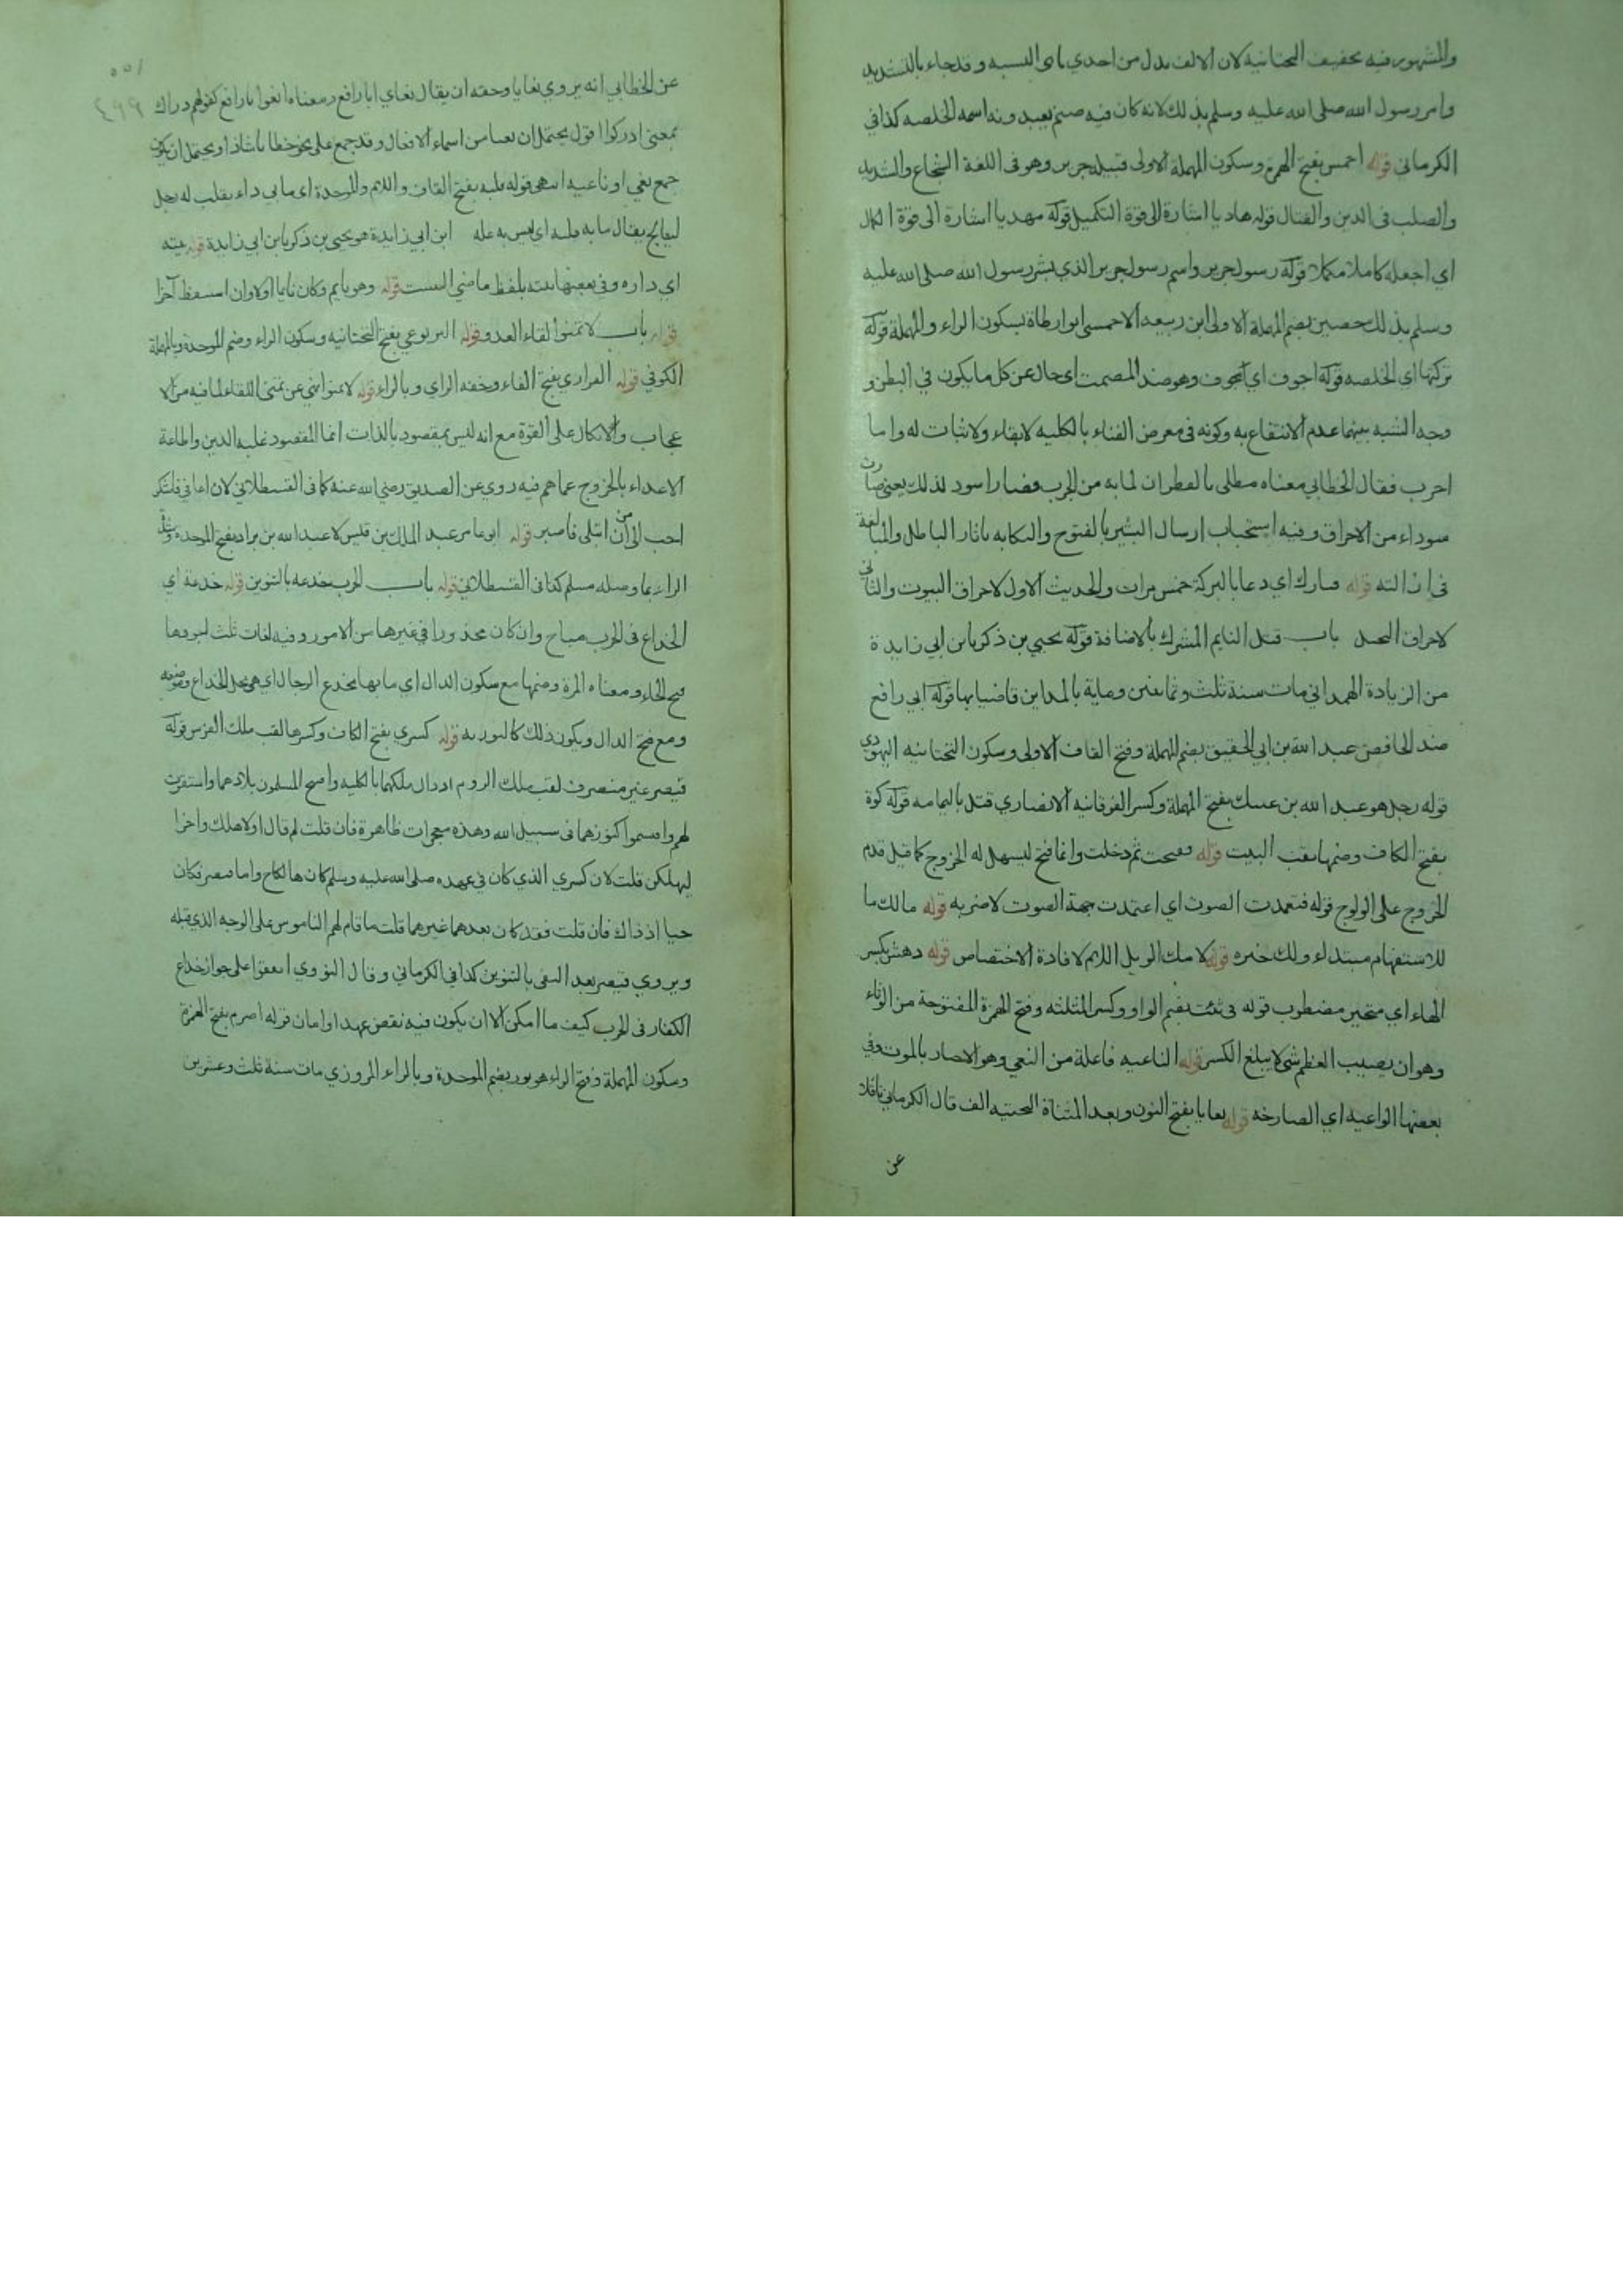 والمشهور فيه تخفيف التحتانية لان الالف بدل من احدي ياى النسبه وقد جاء بالتشديد
وامر رسول الله صلى الله عليه وسلم بذلك لانه كان فيه صنم يعبد ونه اسمه الخلصه كذا في
الكرماني قوله احمس بفتح الهمزة وسكون المهملة الاولى قبيلة جرير وهو في اللغة الشجاع والشديد
والصلب في الدين والقتال قوله هاديا اشارة الى قوة التكميل قوله مهديا اشارة الى قوة الكمال
اي اجعله كاملا مكملا قوله رسول جرير واسم رسول جرير الذي بشر رسول الله صلى الله عليه
وسلم بذلك حصين بضم المهملة الاولى ابن ربيعه الاحمسى ابو ارطاة بسكون الراء والمهملة قوله
تركتها اي الخلصه قوله اجوف اي مجوف وهو ضد المصمت اى خال عن كل ما يكون في البطن و
وجه الشبه بينهما عدم الانتفاع به وكونه في معرض الفناء بالكليه لا بقاء ولا ثبات له واما
اجرب فقال الخطابي معناه مطلى بالقطران لما به من الجرب فصار اسود لذلك يعني صارت
سوداء من الاحراق وفيه استحباب ارسال البشير بالفتوح والنكايه باثار الباطل والمبالغة
في ازالته قوله فبارك اي دعا بالبركة خمس مرات والحديث الاول لاحراق البيوت والثاني
لاحراق النخل باب قتل النايم المشرك بالاضافة قوله يحيي بن ذكريا بن ابي زايدة
من الزيادة الهمداني مات سنة ثلث وثمانين وماية بالمداين قاضيا بها قوله ابي رافع
ضد الخافض عبد الله بن ابي الحقيق بضم المهملة وفتح القاف الاولى وسكون التحتانيه اليهودي
قوله رجل هو عبد الله بن عتيك بفتح المهملة وكسر الفوقانيه الانصاري قتل باليمامه قوله كوة
بفتح الكاف وضمها نقب البيت قوله ففتحت ثم دخلت وانما فتح ليسهل له الخروج كما قيل قدم
الخروج على الولوج قوله فتعمدت الصوت اي اعتمدت جهة الصوت لاضربه قوله مالك ما
للاستفهام مبتداء ولك خبره قوله لامك الويل اللام لافادة الاختصاص قوله دهش بكسر
الهاء اي متحير مضطرب قوله وثئت بضم الواو وكسر المثلثه وفتح الهمزة المفتوحة من الوثاء
وهو ان يصيب العظم شي لا يبلغ الكسر قوله الناعيه فاعلة من النعي وهو الاخبار بالموت وفي
بعضها الواعيه اي الصارخه قوله نعايا بفتح النون وبعد المثناة التحتيه الف قال الكرماني ناقلا
عن
عن الخطابي انه يروي نعايا وحقه ان يقال نعاي ابا رافع ومعناه انعوا ابا رافع كقولهم دراك
بمعنى ادركوا اقول يحتمل ان نعايا من اسماء الافعال وقد جمع على نحو خطايا شاذا ويحتمل ان يكون
جمع نعي او ناعيه انتهى قوله قلبه بفتح القاف واللام والموحدة اى ما بي داء يقلب له رجل
ليعالج يقال ما به قلبه اي ليس به عله ابن ابي زايدة هو يحيى بن ذكريا بن ابي زايدة قوله بيته
اي داره وفي بعضها بيته بلفظ ماضي التبييت قوله وهو نايم وكان نايما اولا وان استيقظ آخرا
قوله باب لا تمنوا لقاء العدو قوله اليربوعي بفتح التحتانيه وسكون الراء وضم الموحدة وبالمهملة
الكوفي قوله الفزاري بفتح الفاء وخفه الزاي وبالراء قوله لا تمنوا نهي عن تمنى اللقاء لما فيه من الا
عجاب والاتكال على القوة مع انه ليس بمقصود بالذات انما المقصود غلبه الدين واطاعة
الاعداء بالخروج عما هم فيه روي عن الصديق رضي الله عنه كما في القسطلاني لان اعافى فاشكر
احب الى من ان ابتلى فاصبر قوله ابو عامر عبد الملك بن قيس لا عبد الله بن براد بفتح الموحدة وشدة
الراء بما وصله مسلم كذا في القسطلاني قوله باب الحرب خدعه بالتنوين قوله خدعة اي
الخداع في الحرب مباح وان كان محذورا في غيرها من الامور وفيه لغات ثلث اجودها
فتح الخاء ومعناه المرة وضمها مع سكون الدال اي ما بها يخدع الرجال اي هي محل الخداع وموضعه
ومع فتح الدال ويكون ذلك كالنوريه قوله كسري بفتح الكاف وكسرها لقب ملك الفرس قوله
قيصر غير منصرف لقب ملك الروم ازال ملكهما بالكليه واصبح المسلمون بلادهما واستقرت
لهم واقسموا كنوزهما في سبيل الله وهذه معجزات ظاهرة فان قلت لم قال اولا هلك واخرا
ليهلكن قلت لان كسري الذي كان في عهده صلى الله عليه وسلم كان هالكا واما قيصر فكان
حيا اذ ذاك فان قلت فقد كان بعدهما غيرهما قلت ما قام لهم الناموس على الوجه الذي قبله
ويروي قيصر بعد النفى بالتنوين كذا في الكرماني وقال النووي اتفقوا على جواز خداع
الكفار في الحرب كيف ما امكن الا ان يكون فيه نقض عهد او امان قوله اصرم بفتح الهمزة
وسكون المهملة وفتح الراء هو بور بضم الموحدة وبالراء المروزي مات سنة ثلث وعشرين